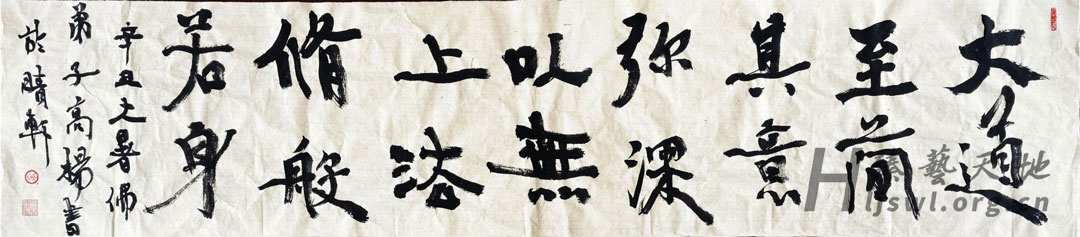 大道
至簡
其意
弥深
以無
上法
脩般
若身
辛丑大暑佛
弟子高楊書
於晴軒
藝天地
Hljswl.org.cn